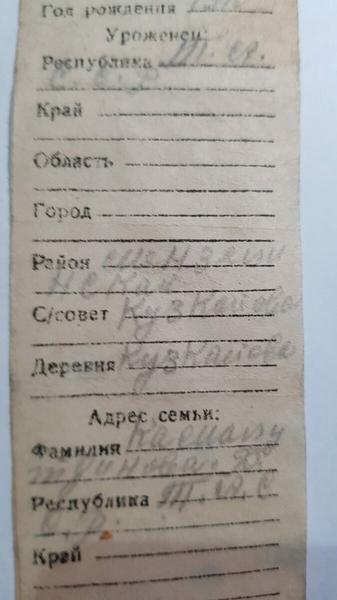 Год рождения
Уроженец:
Республика Т. А.
С. С. Р
Край
Область
Город
Район мензели
нская
С/совет Кузкеево
Деревня Кузкеево
Адрес семьи:
Фамилия
Республика Т. А. С
С. Р.
Край